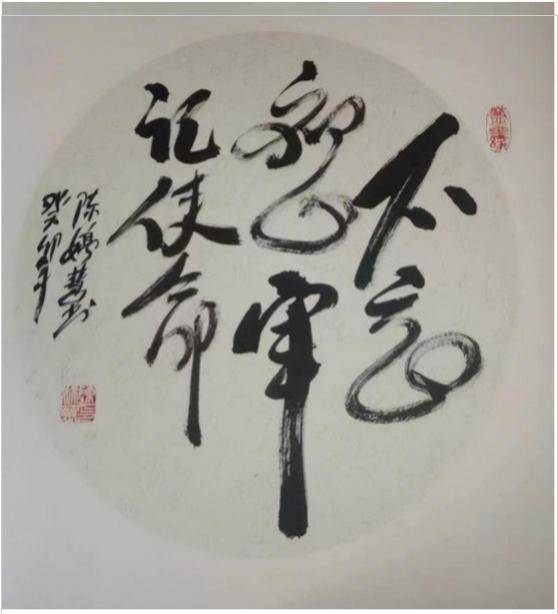 不忘
初心牢
记使命
陈嫦慧书
癸卯年